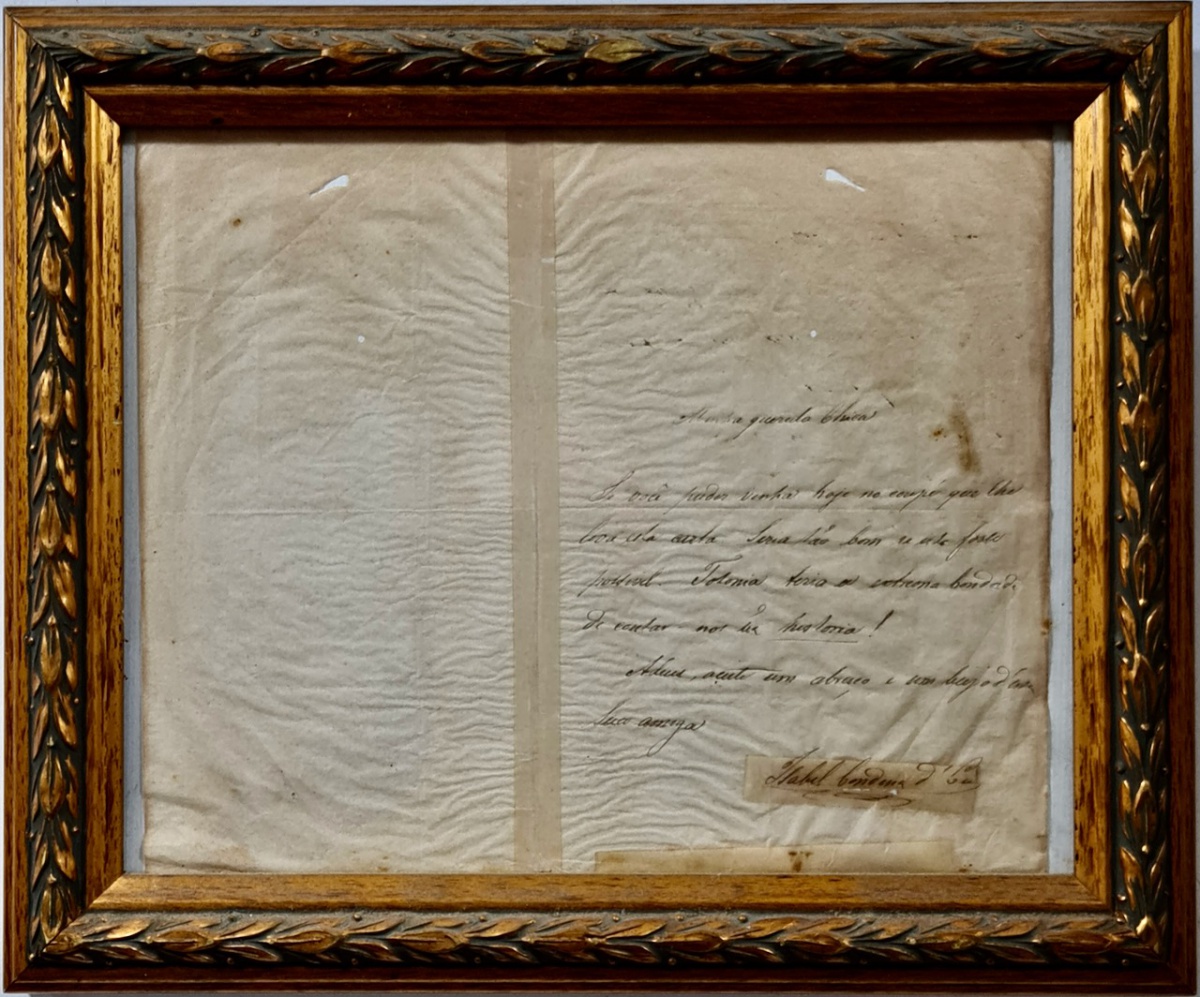 Minha querida Chica
Se você puder venha hoje no coupé que lhe
leva esta carta. Seria tão bom se isto fosse
possivel. Totonia teria a extrema bondade
de contar-nos ũa historia!
Adeus, aceite um abraço e um beijo d'esta
sua amiga
Isabel Condessa d'Eu